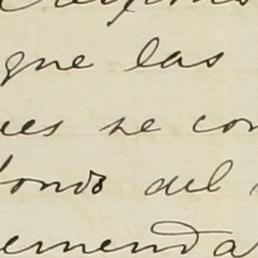 que las
ues se con
fondo del
emenda